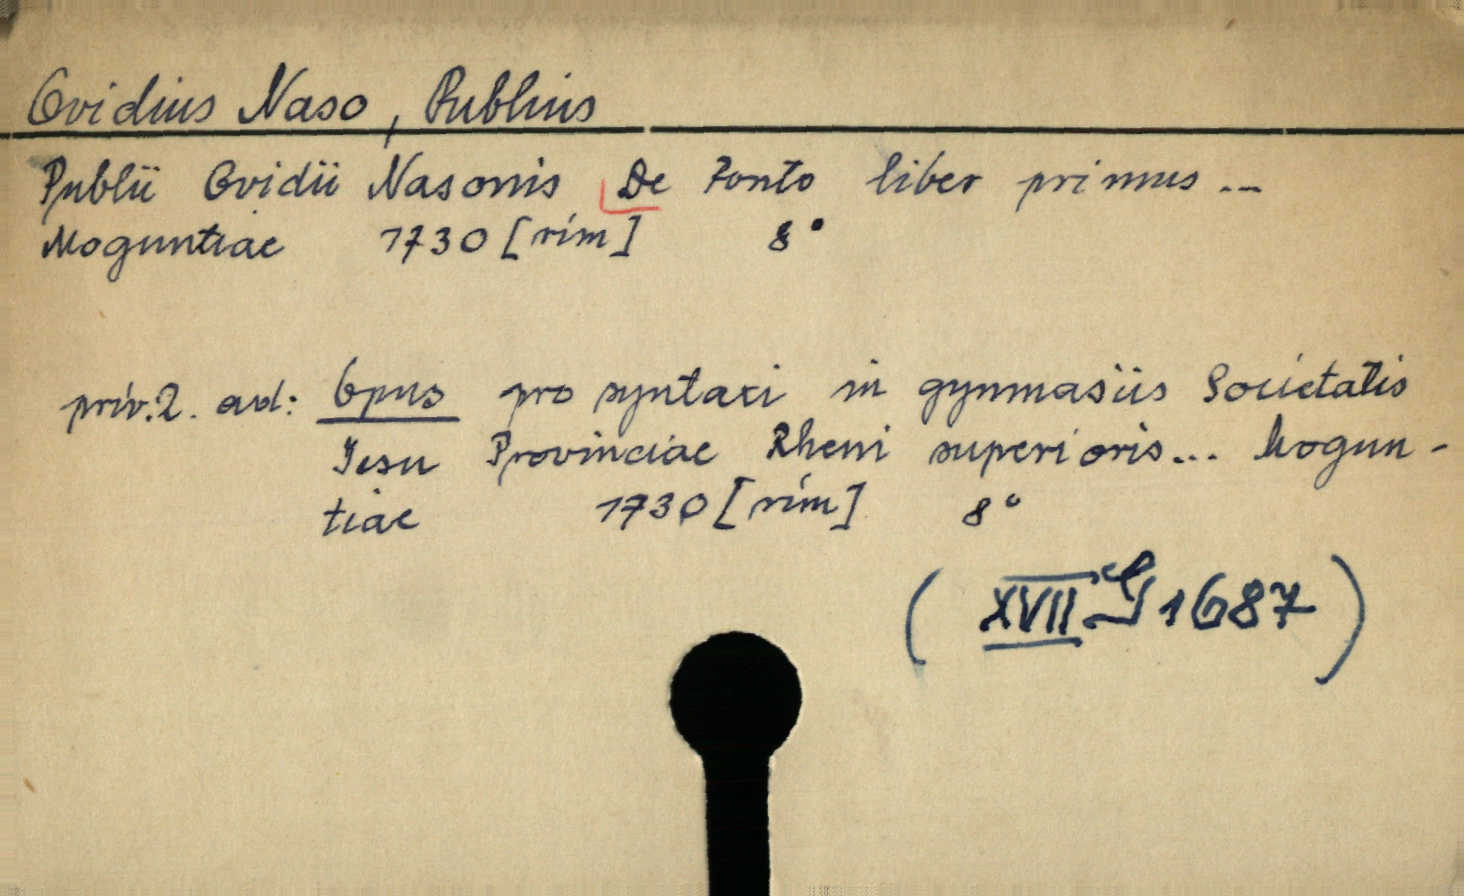 Ovidius Naso, Publius
Publii Ovidii Nasonis De Ponto liber primus ...
Moguntiae 1730 [rím] 8°
prív. 2. ad: Opus pro syntaxi in gymnasiis Societatis
Iesu Provinciae Rheni superioris... Mogun-
tiae 1730 [rím] 8°
( XVII G 1687 )